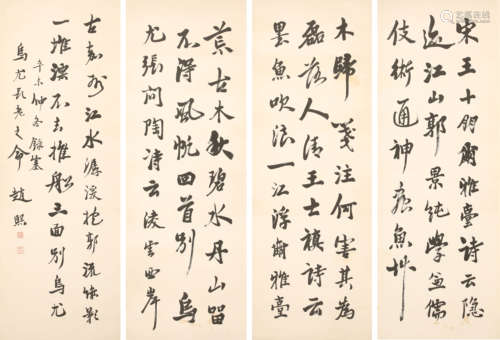 宋王十朋爾雅臺詩云隱
迹江山郭景純學兼儒
伎術通神痕魚艸
木歸箋注何害其為
磊落人清王士禛詩云
墨魚吹浪一江浮爾雅臺
荒古木秋碧水丹山留
不得風帆回首別烏
尤張問陶詩云淩雲西岸
古嘉州江水潺湲抱郭流綠影
一堆漂不去推船三面別烏尤
辛未仲冬錄
烏尤
老之命
趙熙